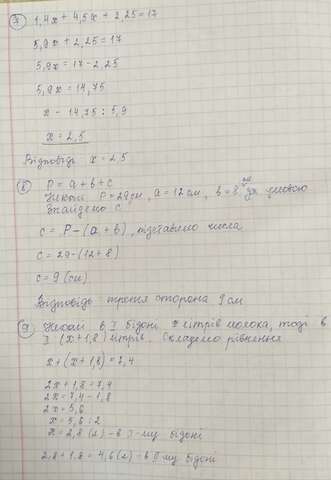 7) 1,4x + 4,5x + 2,25 = 17
5,9x + 2,25 = 17
5,9x = 17 - 2,25
5,9x = 14,75
x = 14,75 : 5,9
x = 2,5
Відповідь x = 2,5
8) P = a + b + c
Нехай P = 29 см, a = 12 см, b = 8 см за умовою
Знайдемо c
c = P - (a + b), підставимо числа
c = 29 - (12 + 8)
c = 9 (см)
Відповідь третя сторона 9 см
9) Нехай в I бідоні x літрів молока, тоді в
I (x + 1,8) літрів. Складемо рівняння
x + (x + 1,8) = 7,4
2x + 1,8 = 7,4
2x = 7,4 - 1,8
2x = 5,6
x = 5,6 : 2
x = 2,8 (л) - в I-му бідоні
2,8 + 1,8 = 4,6 (л) - в II му бідоні